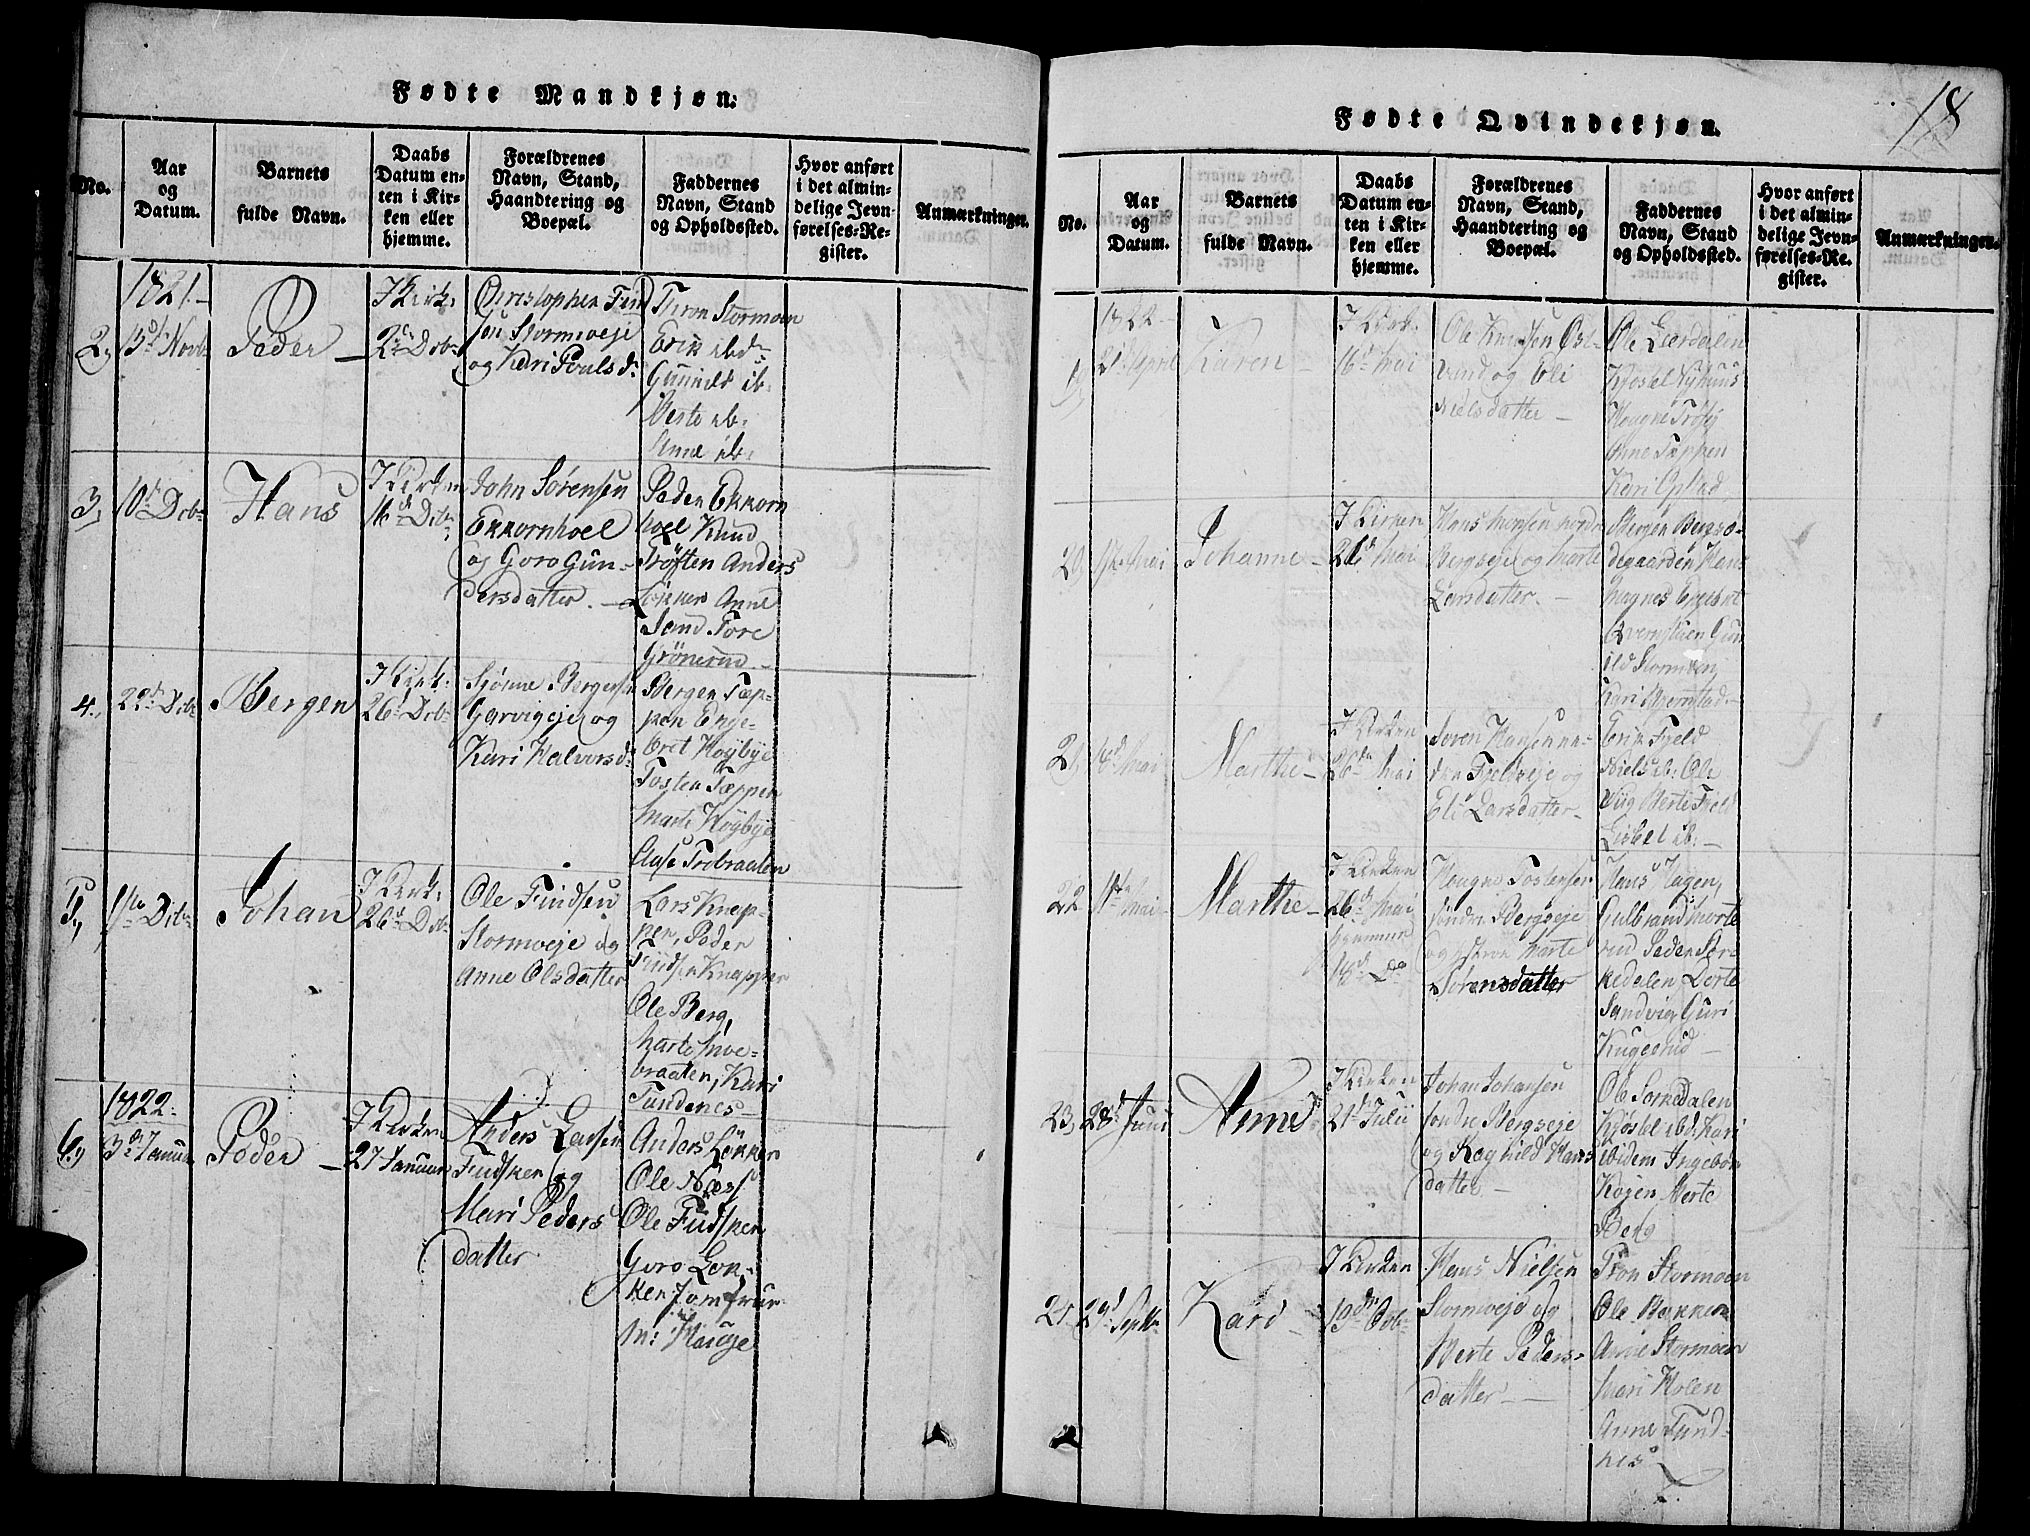 Fødte Mandkjøn:
No.
Aar
og
Datum.
Barnets
fulde Navn.
Daabs
Datum en-
ten i Kir-
ken eller
hjemme.
Forældrenes
Navn, Stand,
Haandtering og
Boepæl.
Faddernes
Navn, Stand
og Opholdssted.
Hvor anført
i det almin-
delige Jevn-
førelses-Re-
gister.
Anmærkninger.
1821.
2,
13d Novb
Peder
I Kirk:
2d Dcb
Christopher
Stormveje
og Kari Poulsd:
Thron Stormoen
Erik ibd
Gunild ib:
Berte ib:
Anne ib:
3,
10d Dcb
Hans
I Kirken
16d Dcb
John Sørensen
Ekkornhoel
og Goro Gun-
dersdatter.
Peder Ekkorn
hoel Knud
Trøften Anders
Løkken Anne
Sand Tore
Grønerud
4.
22d Dcb
Bergen
I Kirk:
26d Dcb
Bergersen
og
Kari Halvorsd:
Bergen Tæp-
pen Enge-
bret Høybye
Tosten Tæppen
Marte Høybye
Aase Trobraaten
5,
1ste Dcb
Johan
I Kirk:
26d Dcb
Ole Findsen
Stormveje og
Anne Olsdatter
Lars Knap-
per, Peder
Findsen Knapper
Ole Berg,
Marte Moe-
braaten, Kari
Tundenes
1822
6,
3d Januar
Peder
I Kirken
27 Januar
Anders Larsen
Fudsker og
Mari Peders
datter
Anders Løkken
Ole Næss
Ole Fudsker
Goro Løk-
ken Jomfrue
M: Hauge
18
Fødte Qvindekjøn.
No.
Aar
og
Datum.
Barnets
fulde Navn.
Daabs
Datum en-
ten i Kir-
ken eller
hjemme.
Forældrenes
Navn, Stand,
Haandtering og
Boepæl.
Faddernes
Navn, Stand
og Opholdssted.
Hvor anført
i det almin-
delige Jevn-
førelses-Re-
gister.
Anmærkninger.
1822
21 April
Karen
I Kirk.
16d Mai
Ole Knudsen Øst-
vend og Eli
Nielsdatter
Ole
Kjøstel Nyhuus
Anne Tæppen
Kari
20
Mai
Johanne
I Kirken
26d Mai
Hans Monsen
Bergseje og Marte
Larsdatter.
Bergen
degaarden Hans
Engebret
Qvernstuen Gun
ild Stormoen
Kari
21,
Mai
Marthe
I Kirken
26d Mai
Soren Hansen
Fjeldseje og
Eli Larsdatter
Erik Fjeld
Niels ib: Ole
Viig Berte Fjeld
Lisbet ib:
22
Mai
Marthe
I Kirken
26d Mai
hjemme
18d Do
Hougne Tostensen
søndre Bergseje
og Marte
Sørensdatter
Hans Hagen,
Gulbrand Morte
rud Peder Sør-
kedalen Dorte
Sandvig Guri
Kugerud
23,
28d Juni
Anne
I Kirken
21d Julii
Johan Johansen
søndre Bergseje
og Raghild Hans
datter
Ole Sørkedalen
Kjøstel ibd: Kari
ibidem Ingebor
Kojen Marte
Berg
24
29d Septbr
Kari
I Kirken
19d Octb
Hans Nielsen
Stormveje og
Berte Peders-
datter
Tron Stormoen
Ole Bakken
Anne Stormoen
Mari Holen
Anne Tund-
nes